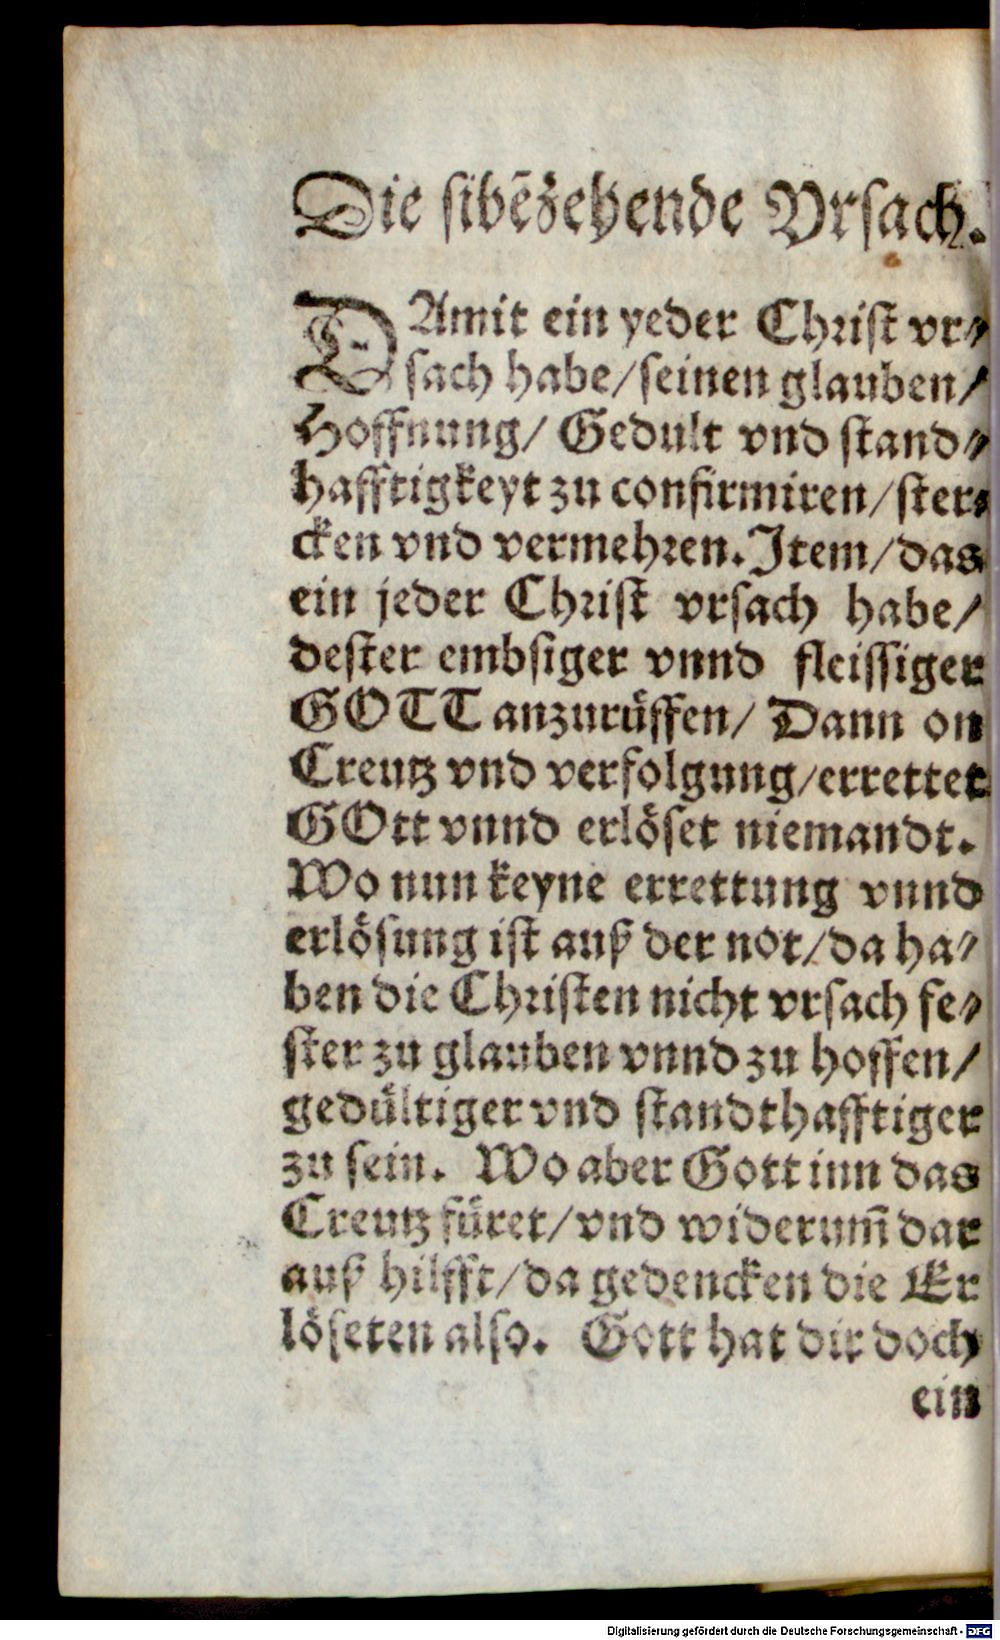 Die sibēzehende Vrsach.
DAmit ein yeder Christ vr⸗
sach habe/seinen glauben/
Hoffnung/ Gedult vnd stand⸗
hafftigkeyt zu confirmiren/ster⸗
cken vnd vermehren. Item/das
ein jeder Christ vrsach habe/
dester embsiger vnnd fleissiger
GOTT anzurüffen/ Dann on
Creutz vnd verfolgung/errettet
GOtt vnnd erlöset niemandt.
Wo nun keyne errettung vnnd
erlösung ist auß der not/da ha⸗
ben die Christen nicht vrsach fe⸗
ster zu glauben vnnd zu hoffen/
gedültiger vnd standthafftiger
zu sein. Wo aber Gott inn das
Creutz füret/vnd widerum̃ dar
auß hilfft/da gedencken die Er
löseten also. Gott hat dir doch
ein
Digitalisierung gefördert durch die Deutsche Forschungsgemeinschaft - DFG